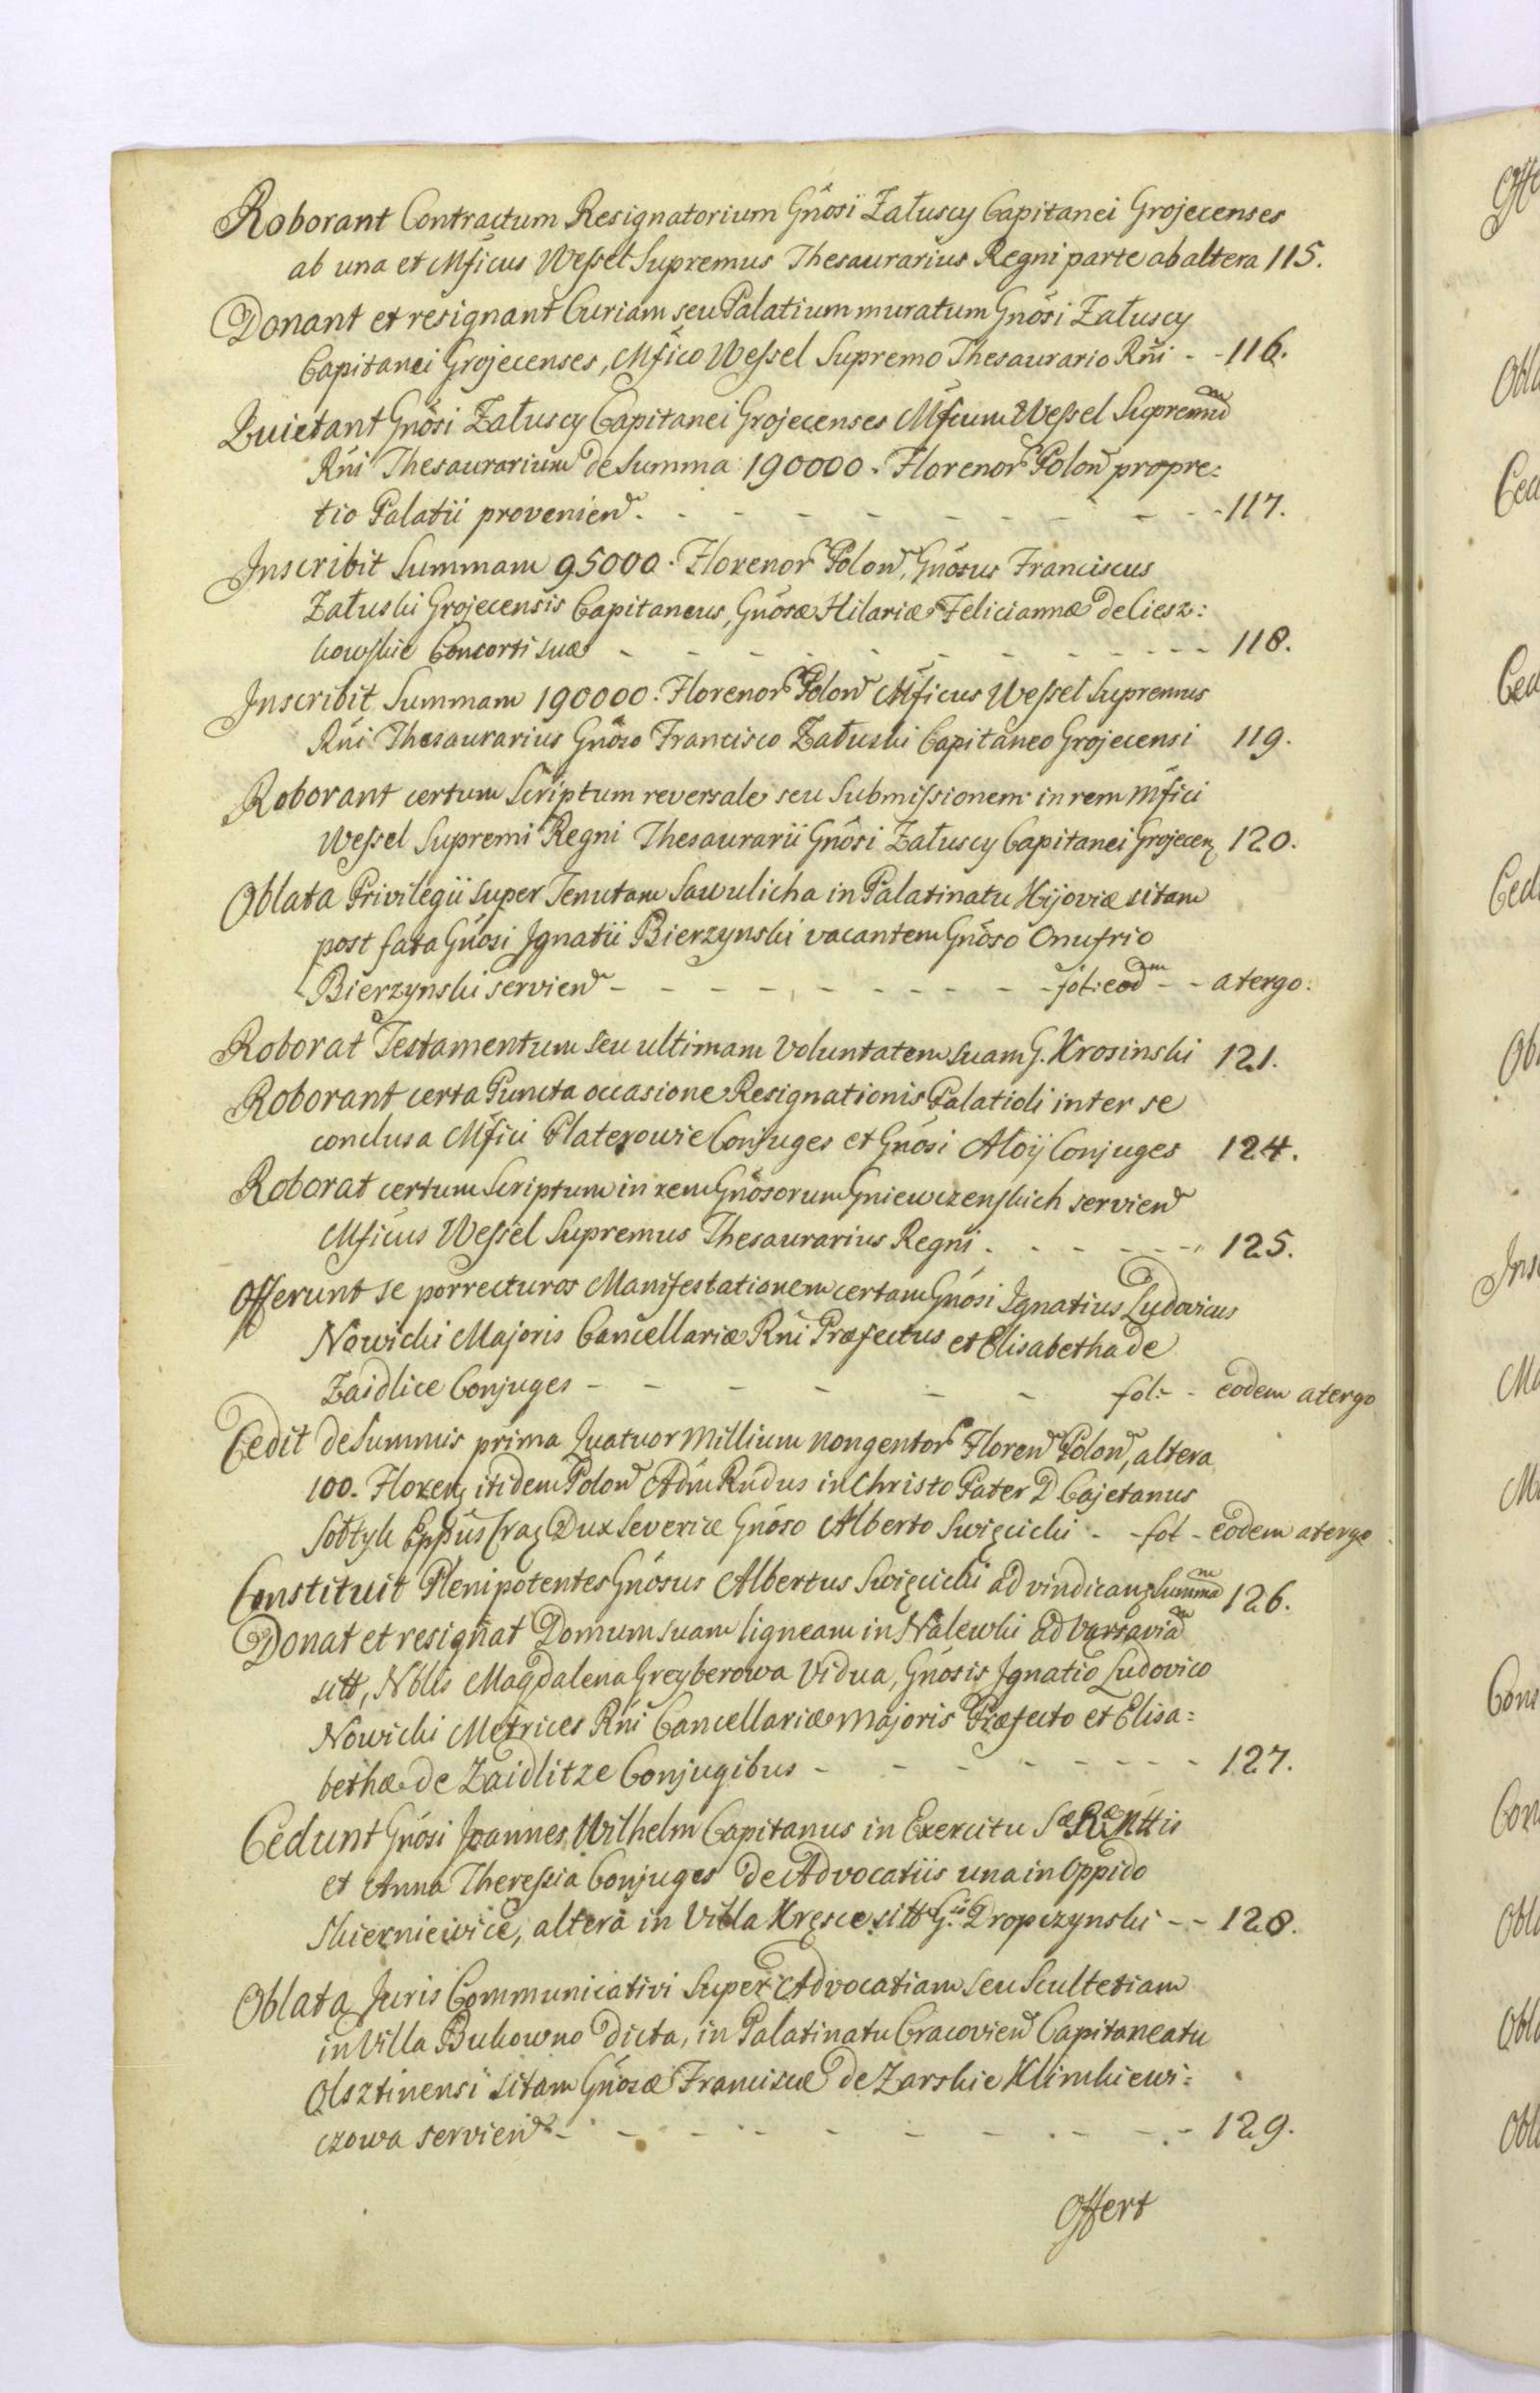 Roborant Contractum Resignatorium Gnosi Załuscy Capitanei Grojecenses
ab una et Mficus Wessel Supremus Thesaurarius Regni parte ab altera 115.
Donant et resignant Curiam seu Palatium muratum Gnosi Załuscy
Capitanei Grojecenses, Mfico Wessel Supremo Thesaurario Rni - - 116.
Quietant Gnosi Załuscy Capitanei Grojecenses Mficum Wessel Supremum
Rni Thesaurarium de Summa 190000. Florenor Polon propre:
tio Palatii provenien - - - - - - - - - 117.
Inscribit Summam 95000. Florenor Polon, Gnosus Franciscus
Załuski Grojecensis Capitaneus, Gnosæ Hilariæ Feliciannæ de Ciesz:
kowskie Consorti suæ - - - - - - - - - 118.
Inscribit Summam 190000. Florenor Polon Mficus Wessel Supremus
Rni Thesaurarius Gnoso Francisco Załuski Capitaneo Grojecensi 119.
Roborant certum Scriptum reversale seu Submissionem in rem Mfici
Wessel Supremi Regni Thesaurarii Gnosi Załuscy Capitanei Grojecen 120.
Oblata Privilegii super Tenutam Sawulicha in Palatinatu Kijoviæ sitam
post fata Gnosi Ignatii Bierzynski vacantem Gnoso Onufrio
Bierzynski servien - - - - - - - - - fol: eodm - - a tergo.
Roborat Testamentum seu ultimam Voluntatem suam G. Krosinski 121.
Roborant certa Puncta occasione Resignationis Palatioli inter se
conclusa Mfici Platerowie Conjuges et Gnosi Aloÿ Conjuges 124.
Roborat certum Scriptum in rem Gnosorum Gniewczenskich servien
Mficus Wessel Supremus Thesaurarius Regni - - - - - - 125.
Offerunt se porrecturos Manifestationem certam Gnosi Ignatius Ludovicus
Nowicki Majoris Cancellariæ Rni Præfectus et Elisabetha de
Zaidlice Conjuges - - - - - - fol: - eodem a tergo
Cedit de Summis prima Quatuor Millium nongentor Floren Polon, altera
100. Floren itidem Polon Adm Rndus in Christo Pater D Cajetanus
Sołtyk Eppus Crac Dux Severiæ Gnoso Alberto Swięcicki - - fol - eodem a tergo
Constituit Plenipotentes Gnosus Albertus Swięcicki ad vindican Summam 126.
Donat et resignat Domum suam ligneam in Nalewki ad Varsaviam
sitt, Nblis Magdalena Greyberowa Vidua, Gnosis Ignatio Ludovico
Nowicki Metrices Rni Cancellariæ Majoris Præfecto et Elisa:
bethæ de Zaidlitze Conjugibus - - - - - - - - 127.
Cedunt Gnosi Joannes Wilhelm Capitanus in Exercitu Sæ Ræ Mttis
et Anna Theressia Conjuges de Advocatiis una in Oppido
Skierniewice, altera in Villa Kręsce sitt Gso Dropczynski - - 128.
Oblata Juris Communicativi Super Advocatiam seu Scultetiam
in Villa Bukowno dicta, in Palatinatu Cracovien Capitaneatu
Olsztinensi sitam Gnosæ Franciscæ de Zarskie Klimkiewi:
czowa servien - - - - - - - - - 129.
Offert